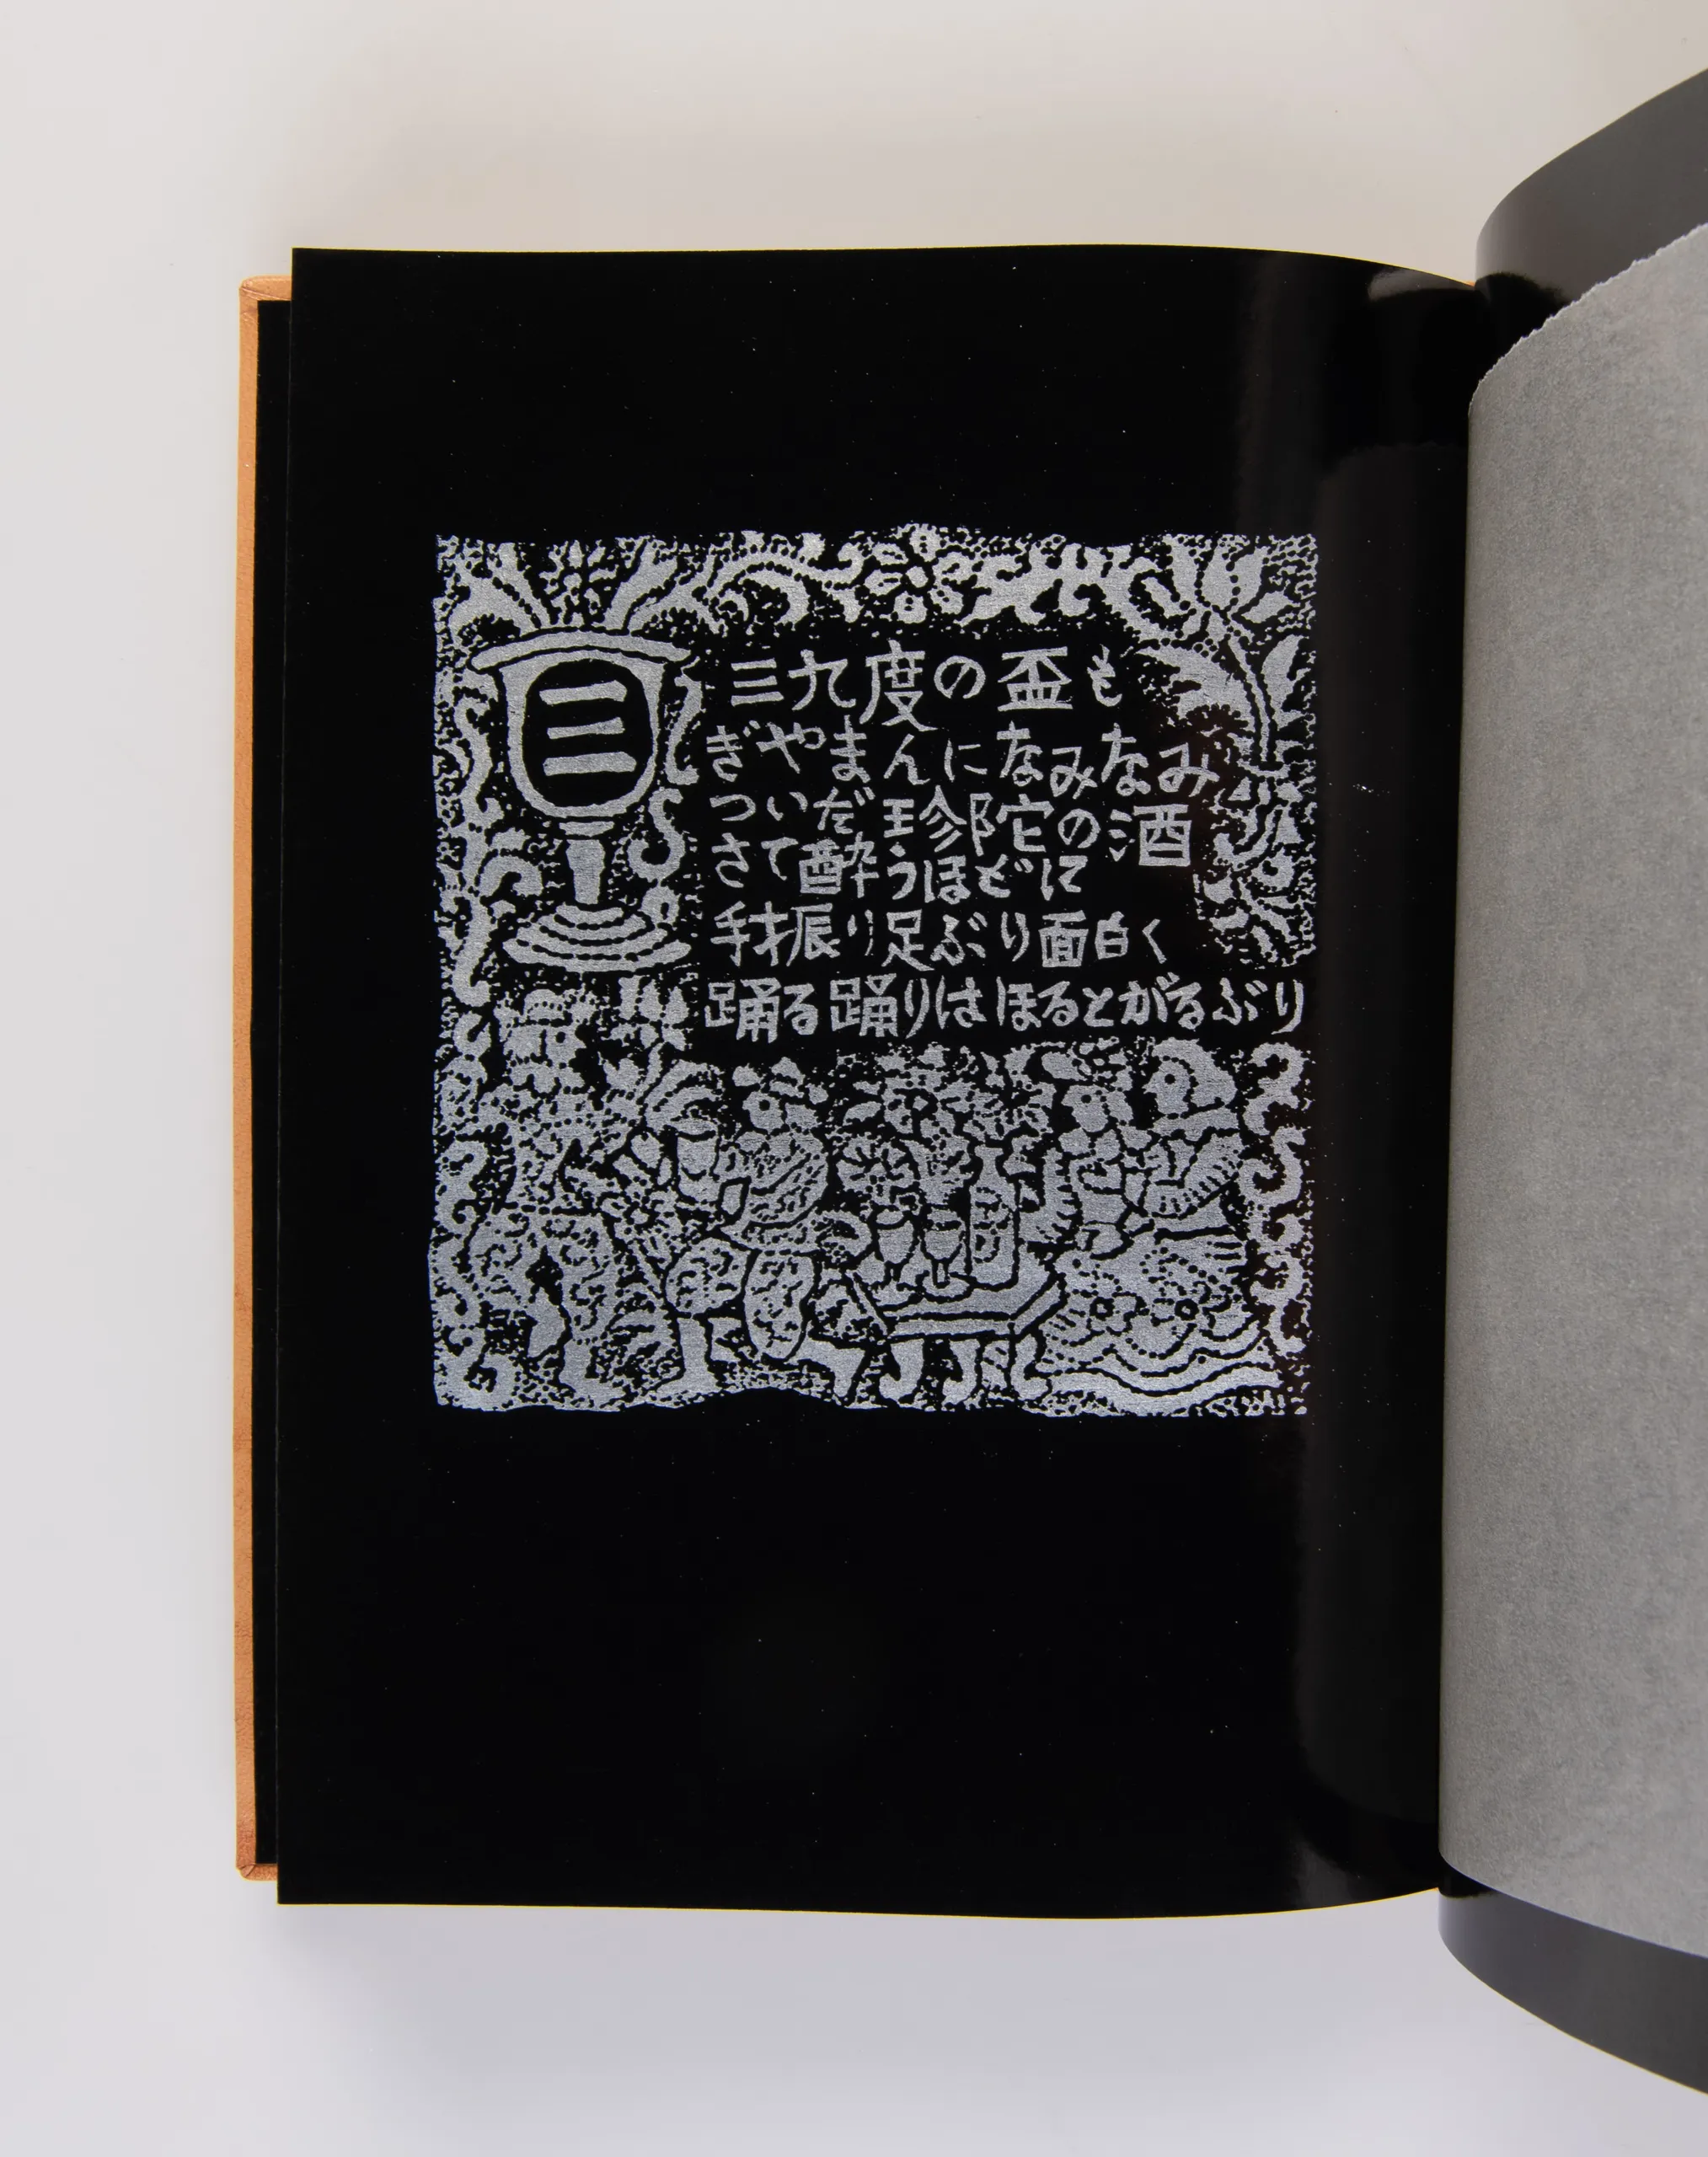 三
三九度の盃も
ぎやまんになみなみ
ついだ珍陀の酒
さて酔うほどに
手振り足ぶり面白く
踊る踊りはほるとがるぶり